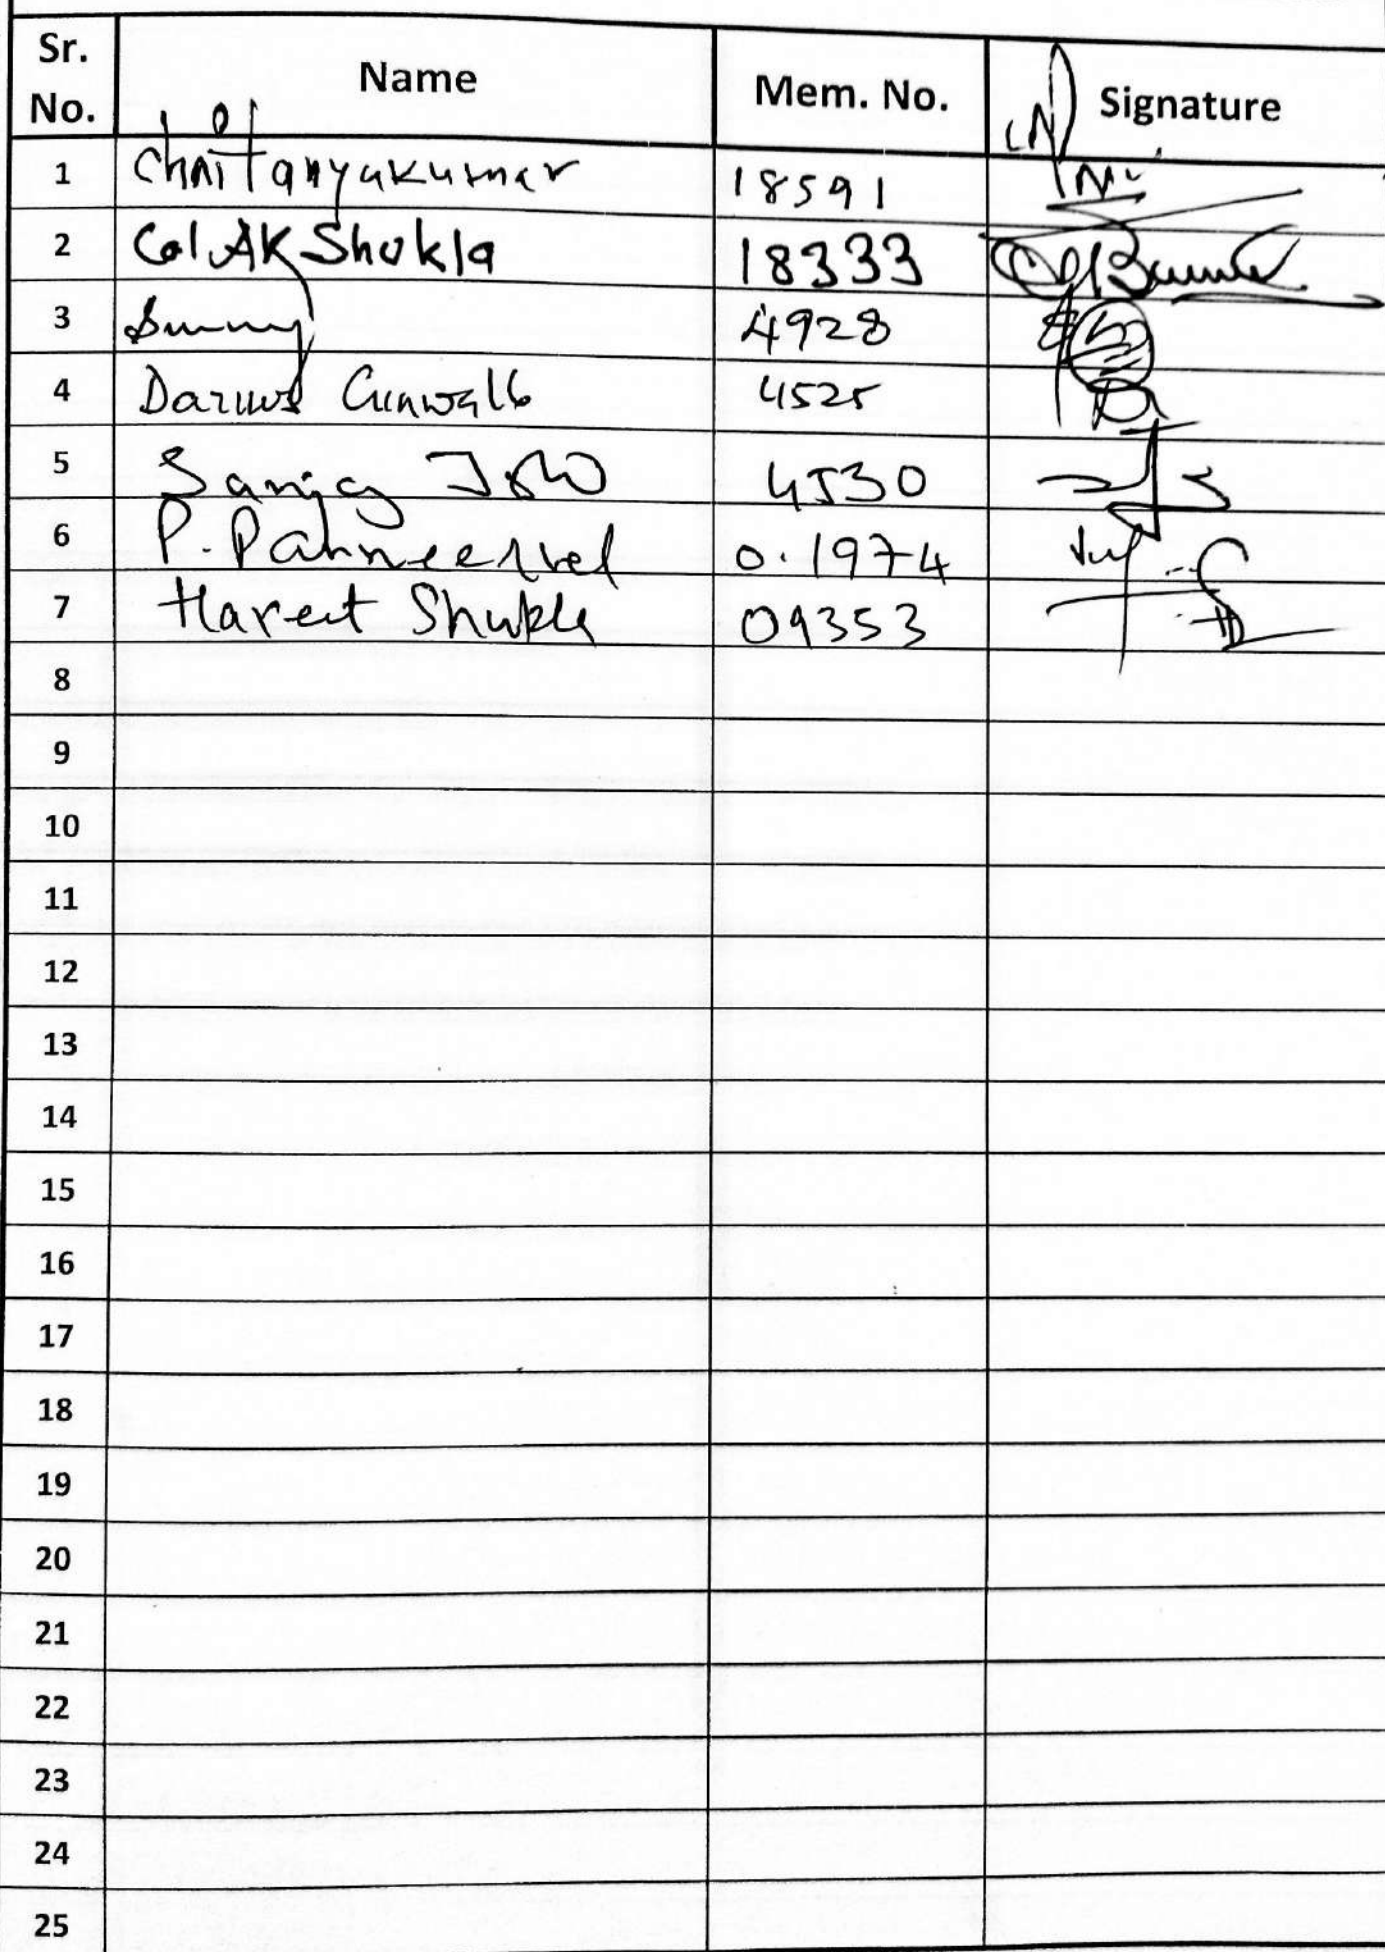 Sr. No. Name Mem. No. Signature
1 Chaitanyakumar 18591
2 Col. AK Shukla 18333
3 Sunny 4928
4 4525
5 Sanjay 4530
6 P. Pahneerlvel 0.1974
7 Hareet Shukla 09353
8
9
10
11
12
13
14
15
16
17
18
19
20
21
22
23
24
25